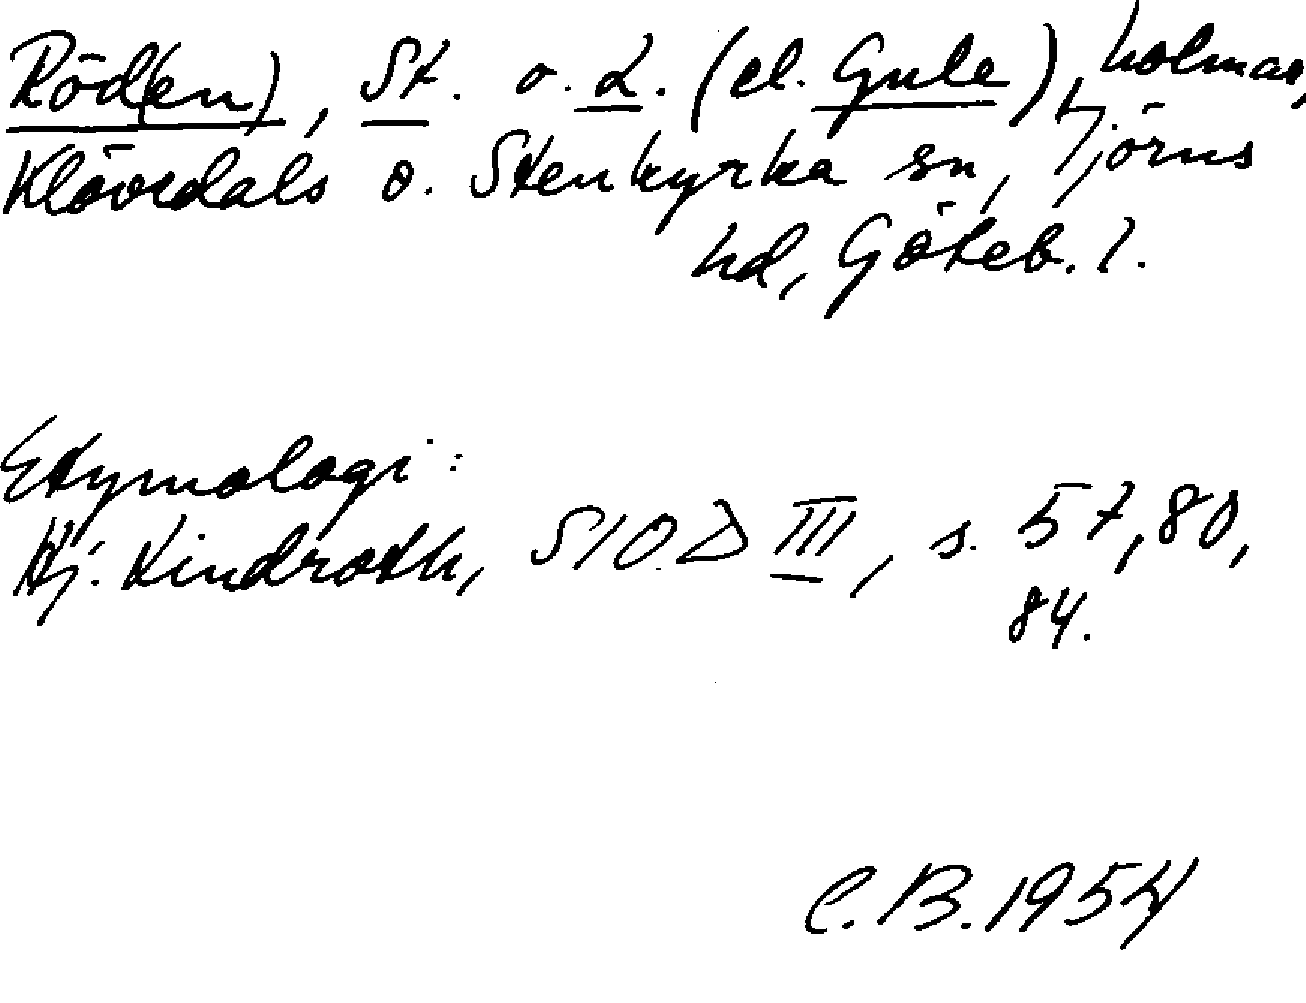 Röd(en), St. o. L. (el. Gule), holmar,
Klövedals o. Stenkyrka sn, Tjörns
hd, Göteb. l.
Etymologi:
Hj. Lindroth, SIOD III, s. 57, 80,
84.
C.B. 1954